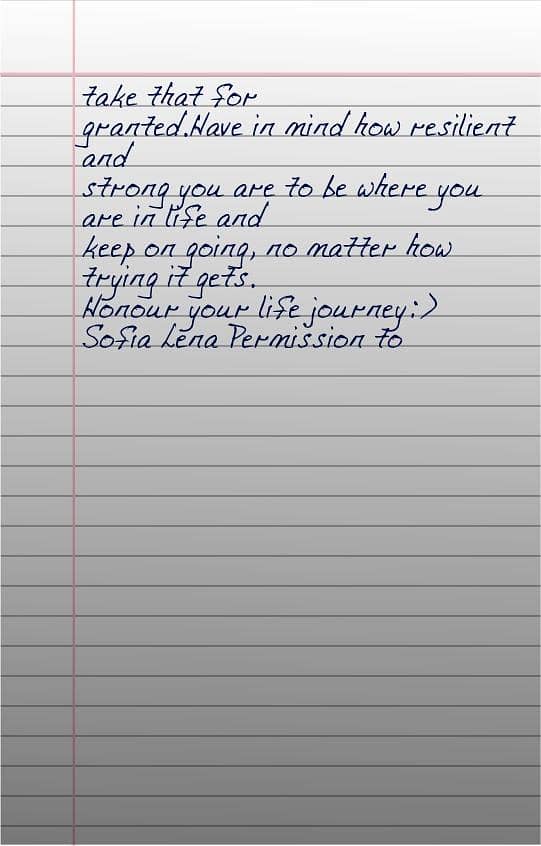 take that for
granted.Have in mind how resilient
and
strong you are to be where you
are in life and
keep on going, no matter how
trying it gets.
Honour your life journey:)
Sofia Lena Permission to